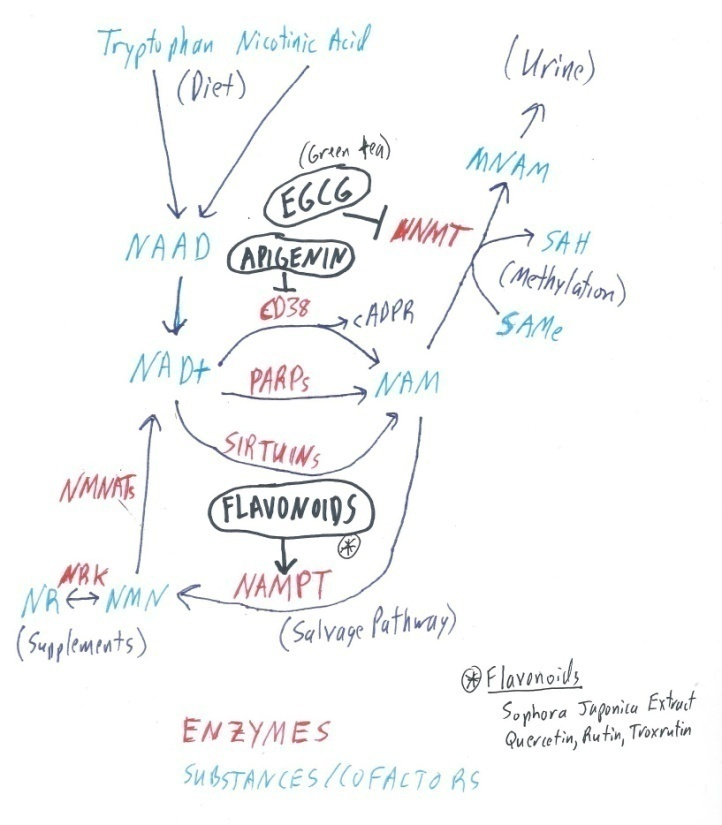 Tryptophan Nicotinic Acid
(Diet)
(Urine)
MNAM
(Green tea)
EGCG
NNMT
NAAD
APIGENIN
SAH
(Methylation)
SAMe
CD38
cADPR
NAD+
PARPs
NAM
SIRTUINs
NMNATs
FLAVONOIDS
*
NRK
NR
NMN
NAMPT
(Supplements)
(Salvage Pathway)
* Flavonoids
Sophora Japonica Extract
Quercetin, Rutin, Troxrutin
ENZYMES
SUBSTANCES/COFACTORS